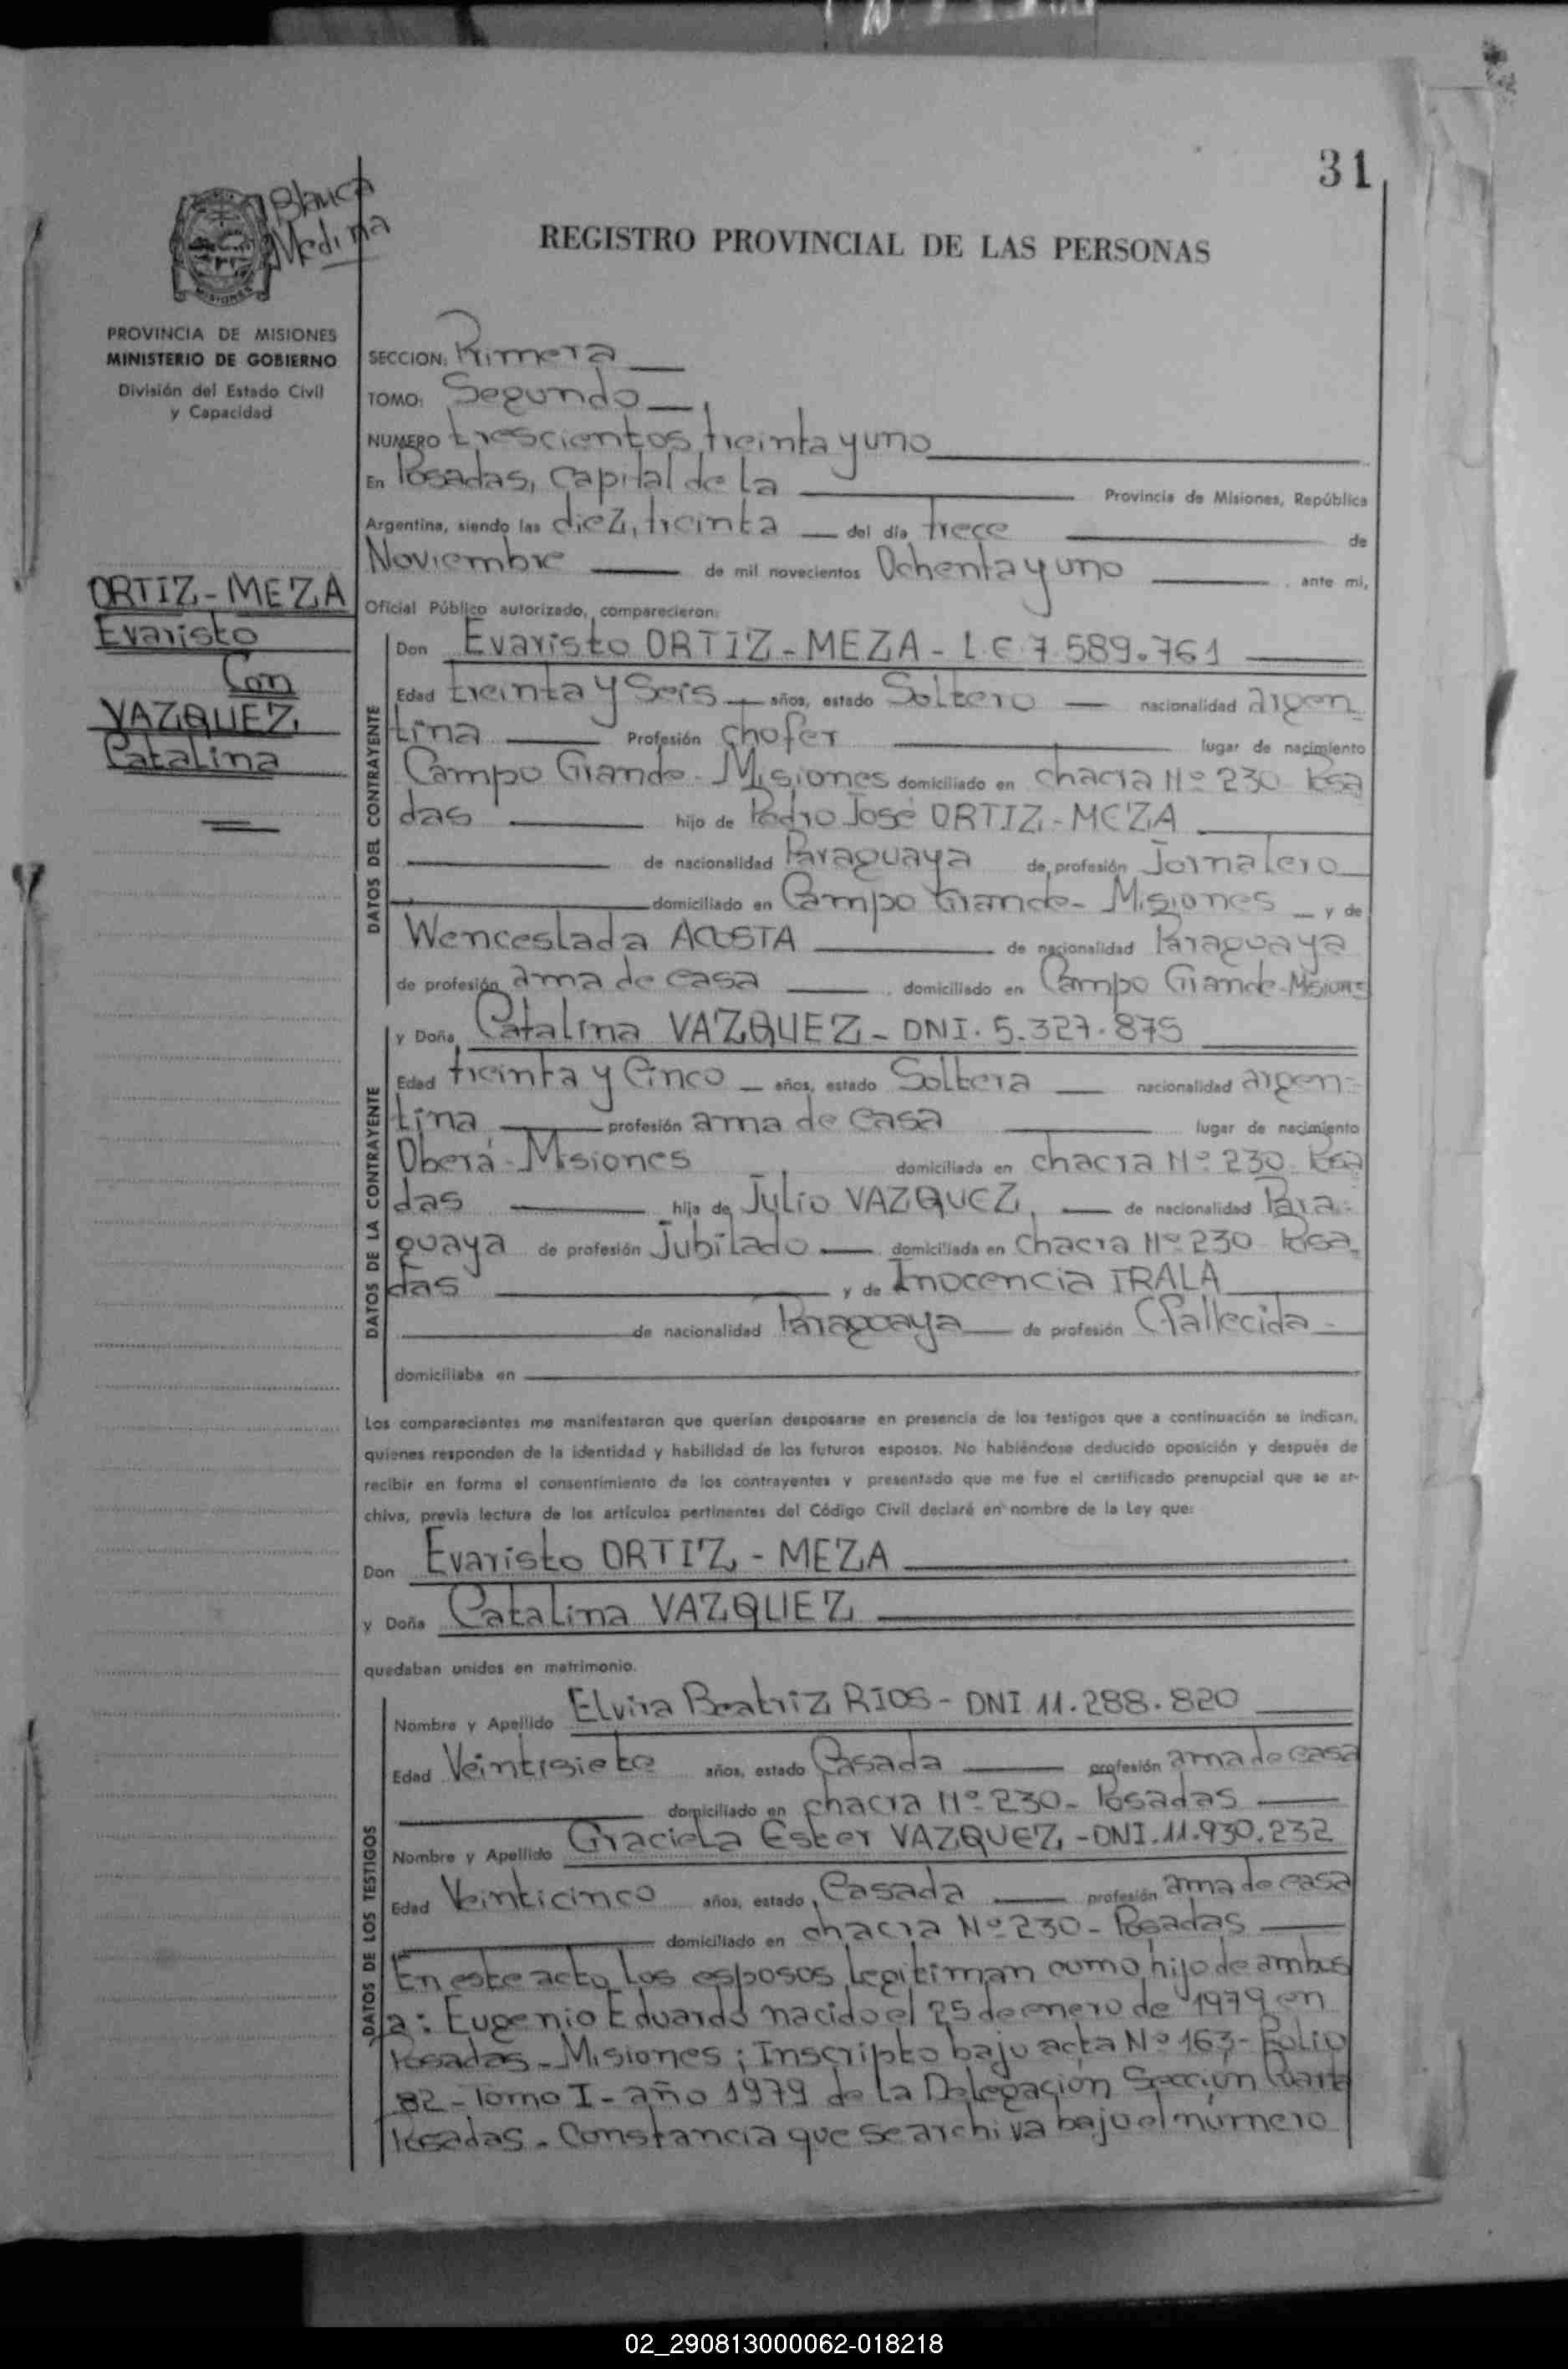 31
Blanca
Medina
REGISTRO PROVINCIAL DE LAS PERSONAS
MISIONES
PROVINCIA DE MISIONES
MINISTERIO DE GOBIERNO
División del Estado Civil
y Capacidad
SECCION: Primera
TOMO: Segundo
NUMERO trescientos treinta y uno
En Posadas, capital de la Provincia de Misiones, República
Argentina, siendo las diez, treinta del día trece de
Noviembre de mil novecientos Ochenta y uno, ante mi,
Oficial Público autorizado, comparecieron:
ORTIZ-MEZA
Evaristo
Con
VAZQUEZ
Catalina
DATOS DEL CONTRAYENTE
Don Evaristo ORTIZ-MEZA - L.E 7.589.761
Edad treinta y Seis años, estado Soltero nacionalidad argen
tina Profesión chofer lugar de nacimiento
Campo Grande - Misiones domiciliado en chacra Nº 230 Posa
das hijo de Pedro José ORTIZ-MEZA
de nacionalidad Paraguaya de profesión Jornalero
domiciliado en Campo Grande - Misiones y de
Wenceslada ACOSTA de nacionalidad Paraguaya
de profesión ama de casa domiciliado en Campo Grande-Misiones
DATOS DE LA CONTRAYENTE
y Doña Catalina VAZQUEZ - DNI. 5.327.875
Edad treinta y Cinco años, estado Soltera nacionalidad argen-
tina profesión ama de casa lugar de nacimiento
Oberá - Misiones domiciliada en chacra Nº 230 Posa
das hija de Julio VAZQUEZ, de nacionalidad Para-
guaya de profesión Jubilado domiciliada en chacra Nº 230 Posa
das y de Inocencia IRALA
de nacionalidad Paraguaya de profesión (fallecida
domiciliaba en
Los comparecientes me manifestaron que querían desposarse en presencia de los testigos que a continuación se indican,
quienes responden de la identidad y habilidad de los futuros esposos. No habiéndose deducido oposición y después de
recibir en forma el consentimiento de los contrayentes y presentado que me fue el certificado prenupcial que se ar-
chiva, previa lectura de los artículos pertinentes del Código Civil declaré en nombre de la Ley que:
Don Evaristo ORTIZ - MEZA
y Doña Catalina VAZQUEZ
quedaban unidos en matrimonio.
DATOS DE LOS TESTIGOS
Nombre y Apellido Elvira Beatriz RIOS - DNI 11.288.820
Edad Veintisiete años, estado Casada profesión ama de casa
domiciliado en chacra Nº 230 - Posadas
Nombre y Apellido Graciela Ester VAZQUEZ - DNI. 11.930.232
Edad Veinticinco años, estado Casada profesión ama de casa
domiciliado en chacra Nº 230 - Posadas
En este acto los esposos legitiman como hijo de ambos
a: Eugenio Eduardo nacido el 25 de enero de 1979 en
Posadas - Misiones; Inscripto bajo acta Nº 163 - Folio
82 - Tomo I - año 1979 de la Delegación Sección Cuarta
Posadas. Constancia que se archiva bajo el número
02_290813000062-018218